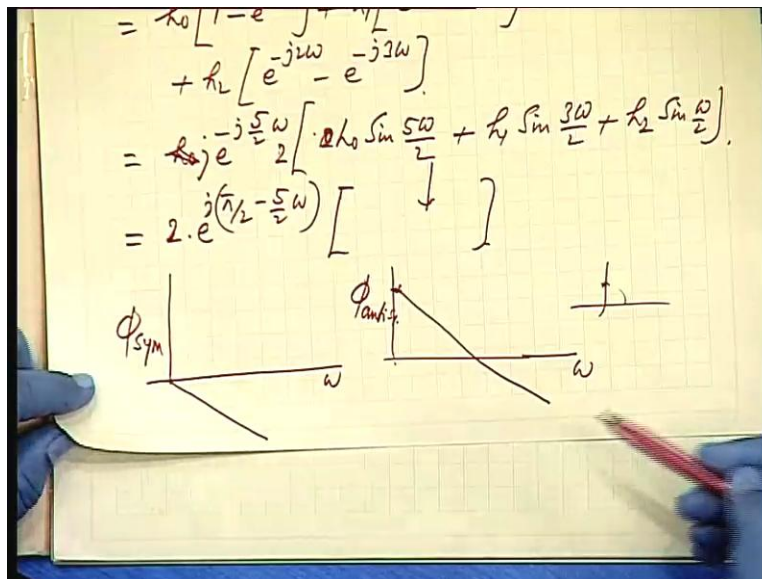 = h₀[1 - e
+ h₂[e^{-j2ω} - e^{-j3ω}].
= j e^{-j5/2 ω} 2[h₀ Sin 5ω/2 + h₁ Sin 3ω/2 + h₂ Sin ω/2].
= 2. e^{j(π/2 - 5/2 ω)} [ ↓ ]
ϕsym ω
ϕantis. ω